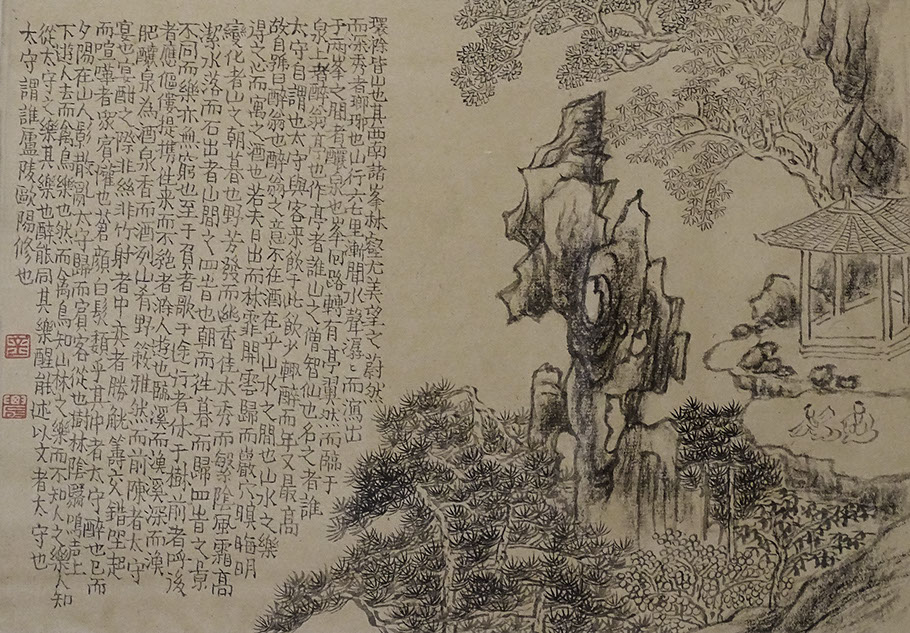 環滁皆山也其西南諸峯林壑尤美望之蔚然
而深秀者瑯琊也山行六七里漸聞水聲潺々而瀉出
于兩峯之間者釀泉也峯回路轉有亭翼然而臨于
泉上者醉翁亭也作亭者誰山之僧智仙也名之者誰
太守自謂也太守與客來飲于此飲少輒醉而年又最高
故自號曰醉翁也醉翁之意不在酒在乎山水之間也山水之樂
得之心而寓之酒也若夫日出而林霏開雲歸而巖穴暝晦明
變化者山之朝暮也野芳發而幽香佳木秀而繁陰風霜高
潔水落而石出者山間之四旹也朝而往暮而歸四旹之景
不同而樂亦無窮也至于負者歌于途行者休于樹前者呼後
者應傴僂提攜往來而不絶者滁人遊也臨溪而漁溪深而漁
肥釀泉為酒泉香而酒洌山肴野蔌雜然而前陳者太守
宴也宴酣之際非絲非竹射者中弈者勝觥籌交錯坐起
而諠譁者衆賓懽也蒼顔白髮頽乎其中者太守醉也已而
夕陽在山人影散亂太守歸而賓客從也樹林陰翳鳴聲上
下遊人去而禽鳥樂也然而禽鳥知山林之樂而不知人之樂人知
從太守之樂其樂也醉能同其樂醒能述以文者太守也
太守謂誰廬陵歐陽修也